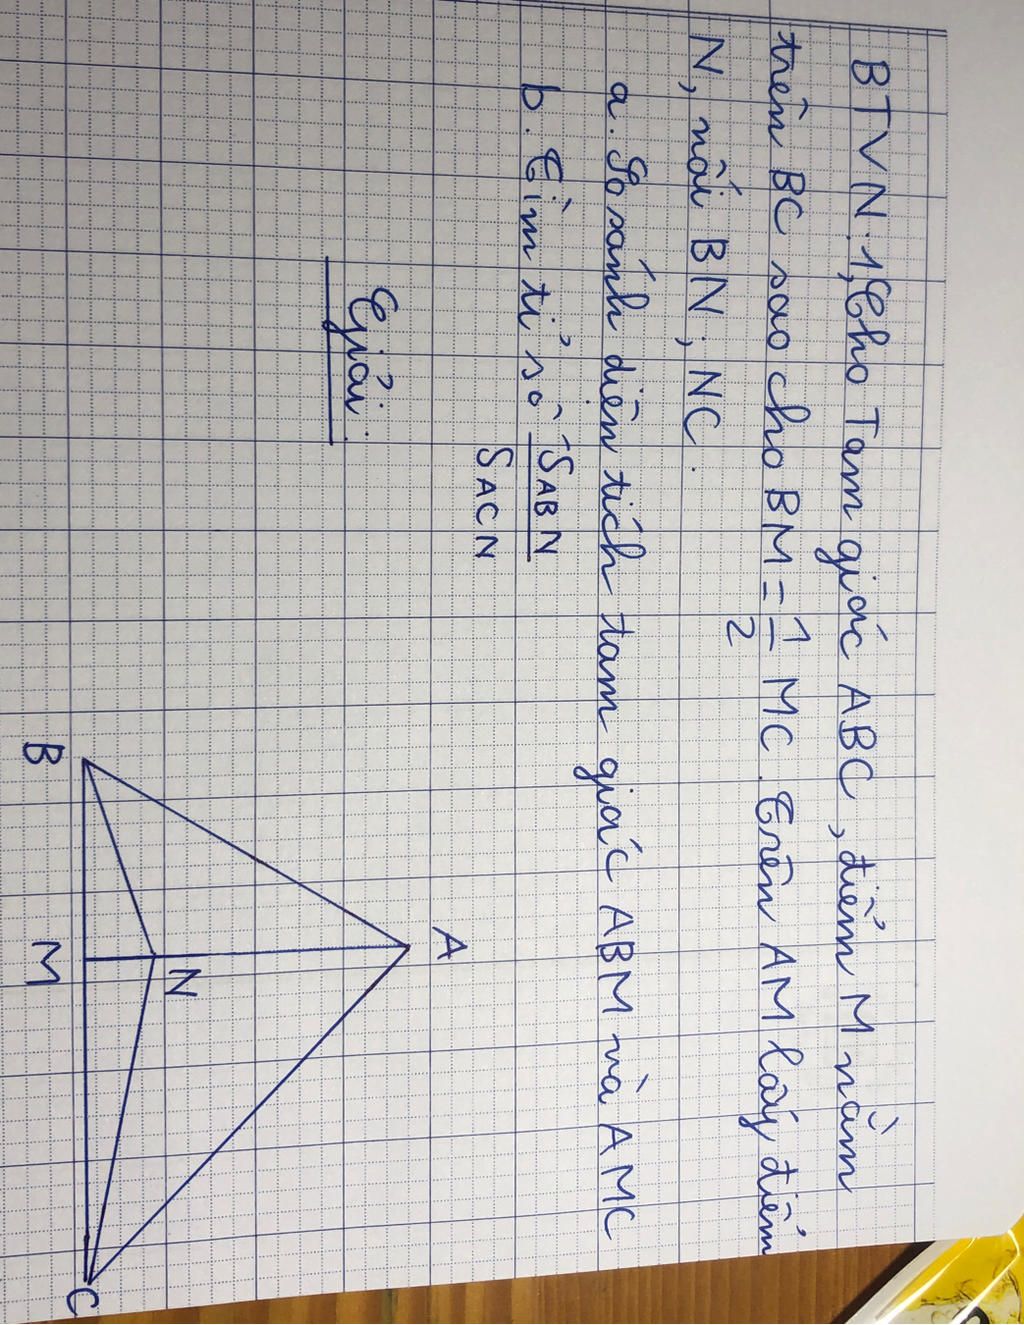 BTVN.1, Cho Tam giác ABC, điểm M nằm
trên BC sao cho BM = 1/2 MC. Trên AM lấy điểm
N, nối BN; NC.
a. So sánh diện tích tam giác ABM và AMC
b. Tìm tỉ số S ABN / S ACN
Giải:
A
N
B
M
C